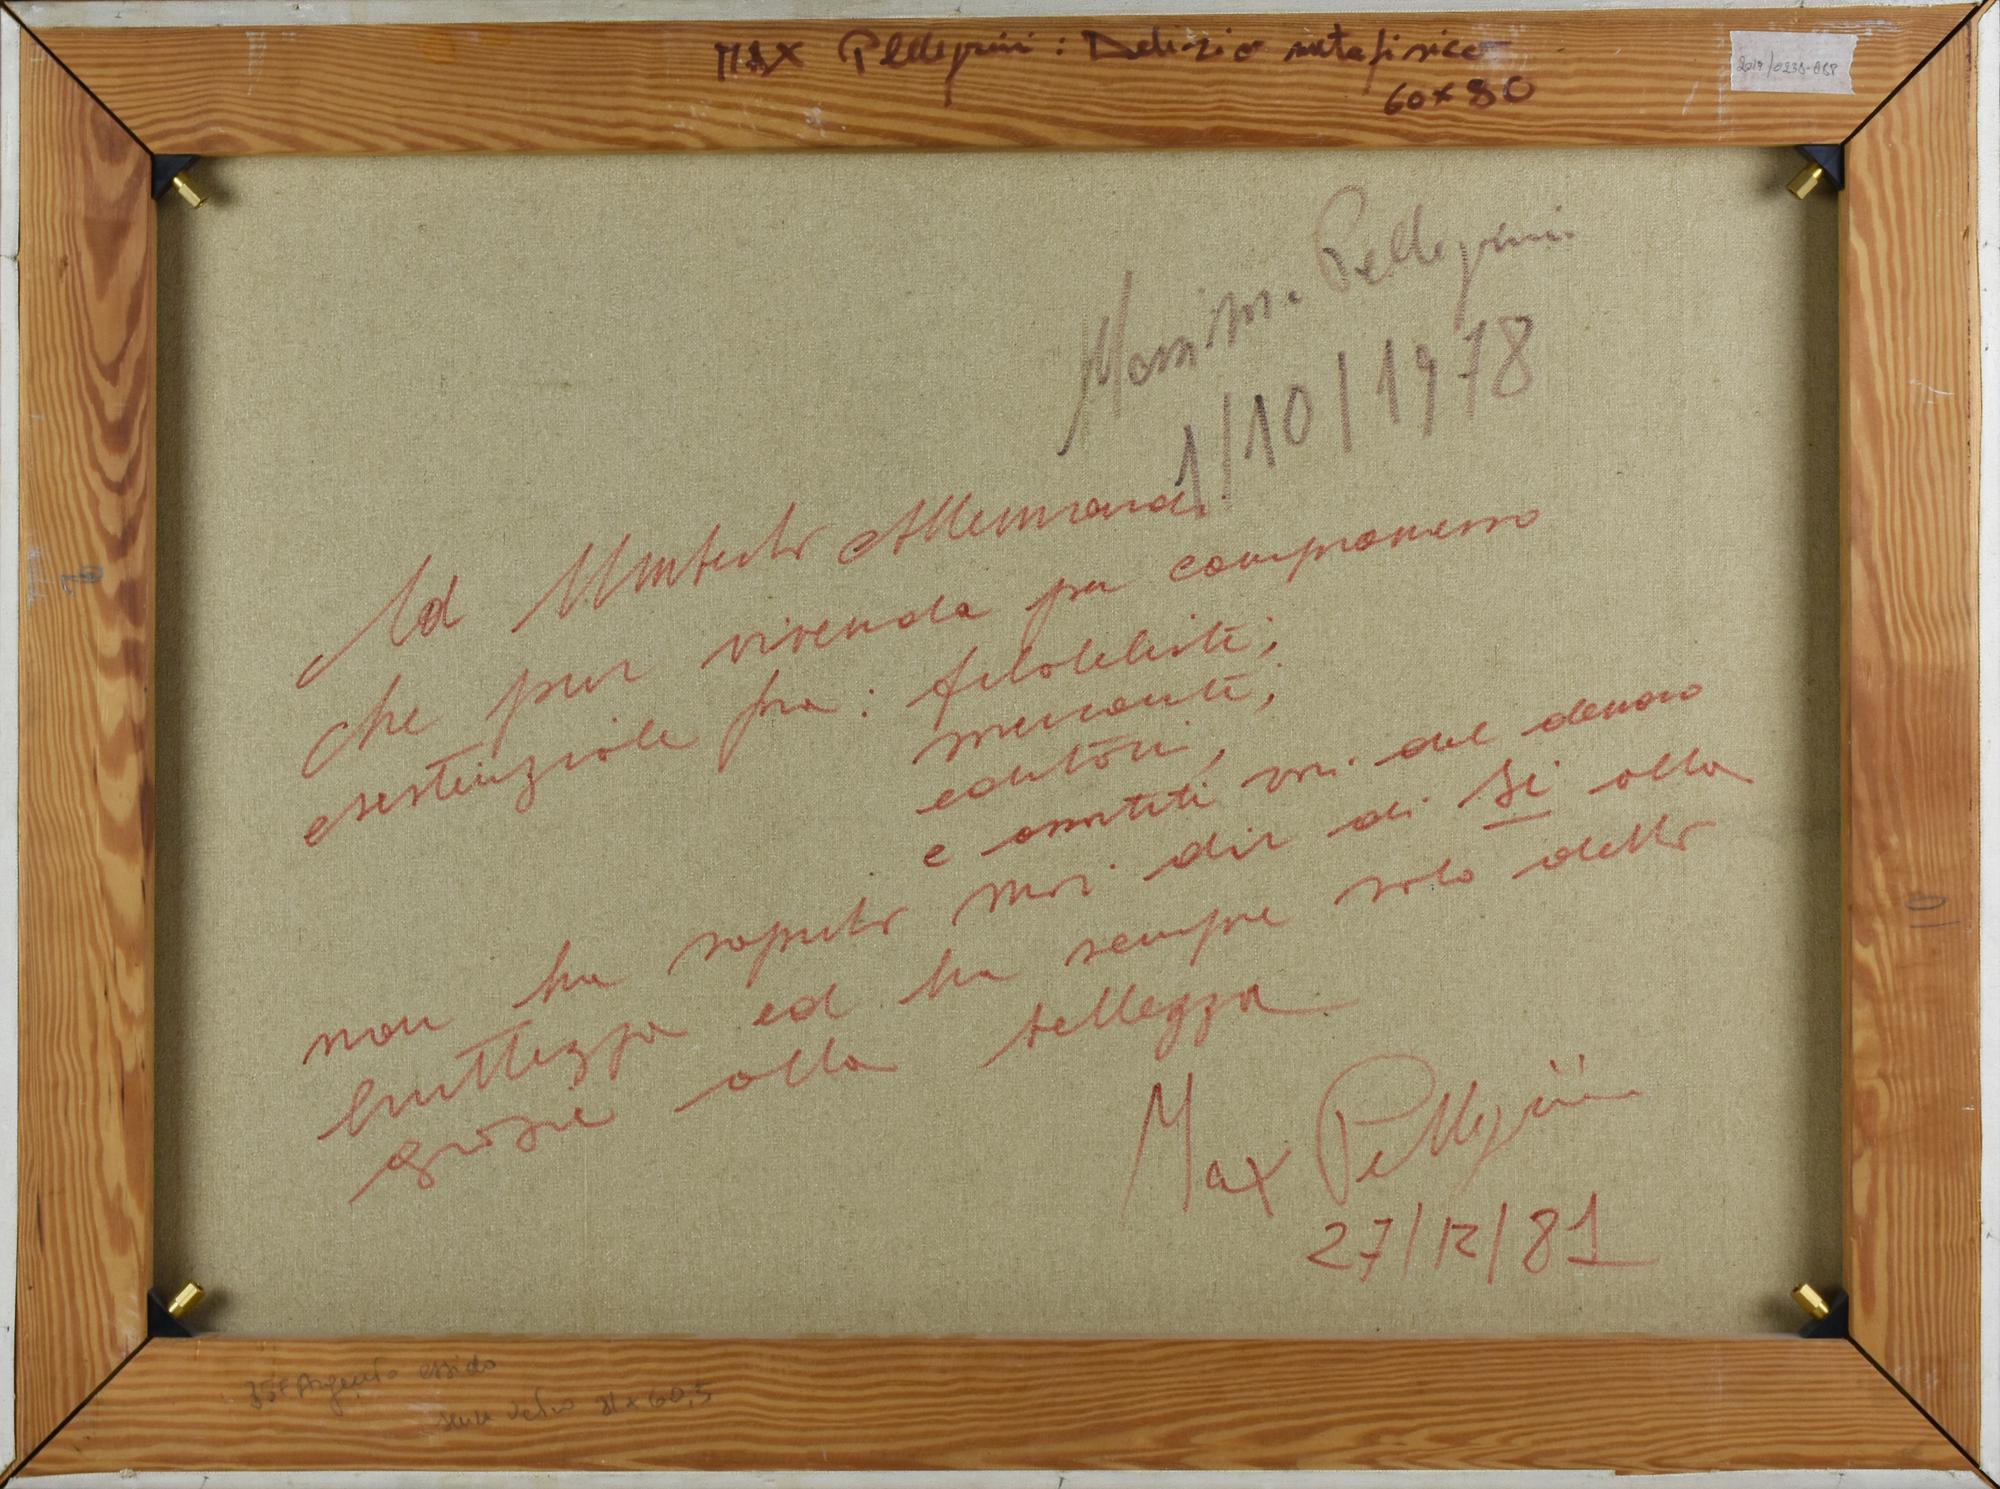 MAX Pellegrini: Delizia metafisica
60 x 80
Massimo Pellegrini
1/10/1978
Ad Umberto Allemandi
che pur vivendo per compromesso
esistenziale fra: filatelisti;
mercanti;
editori,
e assatiti vri. del denaro
non ha saputo mai dir di Si alla
bruttezza ed ha sempre solo detto
grazie alla bellezza
Max Pellegrini
27/12/81
Argento ossido
senza vetro 81 x 60,5
10